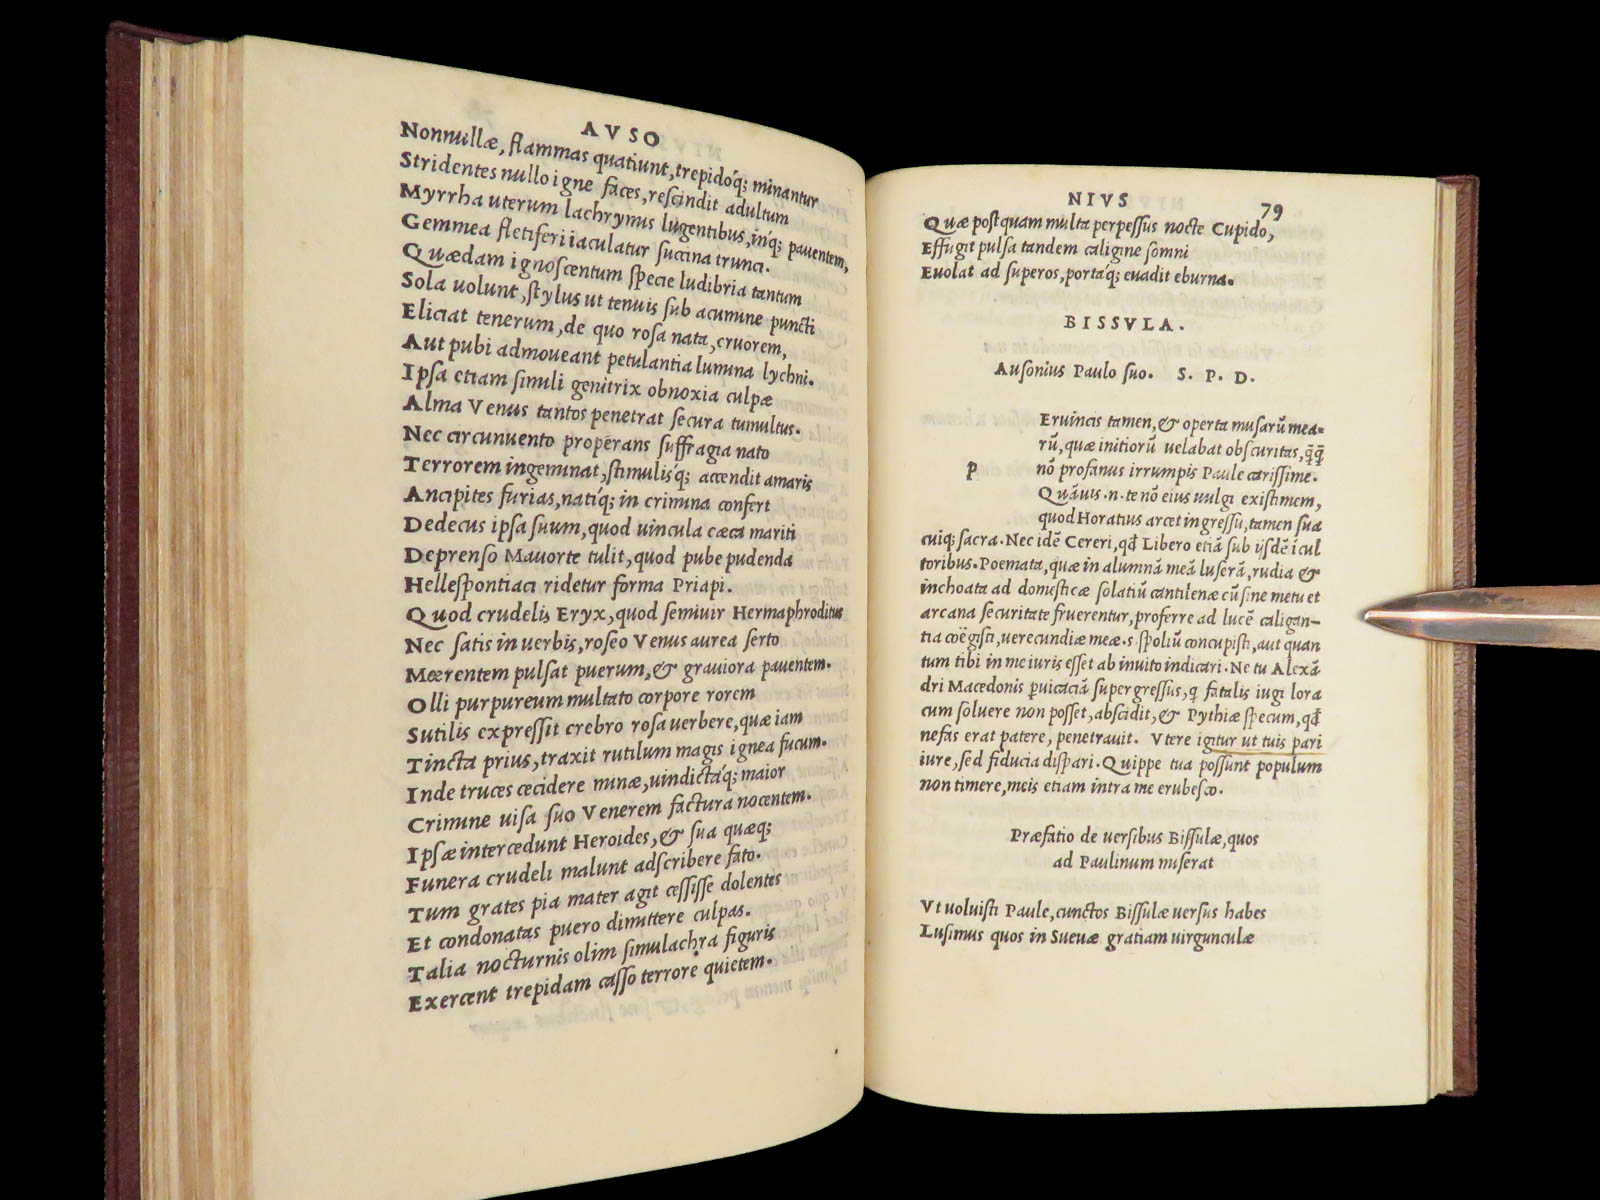 AVSO
Nonnullæ, flammas quatiunt, trepidóq; minantur
Stridentes nullo igne faces, rescindit adultum
Myrrha uterum lachrymis lugentibus, inq; pauentem,
Gemmea fletiferi iaculatur succina trunci.
Quædam ignoscentum specie ludibria tantum
Sola uolunt, stylus ut tenuis sub acumine puncti
Eliciat tenerum, de quo rosa nata, cruorem,
Aut pubi admoueant petulantia lumina lychni.
Ipsa etiam simili genitrix obnoxia culpæ
Alma Venus tantos penetrat secura tumultus.
Nec circunuento properans suffragia nato
Terrorem ingeminat, stimulisq; accendit amaris
Ancipites furias, natiq; in crimina confert
Dedecus ipsa suum, quod uincula cæca mariti
Deprenso Mauorte tulit, quod pube pudenda
Hellespontiaci ridetur forma Priapi.
Quod crudelis Eryx, quod semiuir Hermaphroditus
Nec satis in uerbis, roseo Venus aurea serto
Mœrentem pulsat puerum, & grauiora pauentem.
Olli purpureum multato corpore rorem
Sutilis expressit crebro rosa uerbere, quæ iam
Tincta prius, traxit rutilum magis ignea fucum.
Inde truces cecidere minæ, uindictáq; maior
Crimine uisa suo Venerem factura nocentem.
Ipsæ intercedunt Heroides, & sua quæq;
Funera crudeli malunt adscribere fato.
Tum grates pia mater agit cessisse dolentes
Et condonatas puero dimittere culpas.
Talia nocturnis olim simulachra figuris
Exercent trepidam casso terrore quietem.
NIVS 79
Quæ postquam multa perpessus nocte Cupido,
Effugit pulsa tandem caligine somni
Euolat ad superos, portaq; euadit eburna.
BISSVLA.
Ausonius Paulo suo. S. P. D.
p Eruincis tamen, & operta musarũ mea-
rũ, quæ initiorũ uelabat obscuritas, q̃q̃
nõ profanus irrumpis Paule carissime.
Quãuis .n. te nõ eius uulgi existimem,
quod Horatius arcet ingressu, tamen sua
cuiq; sacra. Nec idẽ Cereri, qđ Libero etiã sub ijsdẽ icul
toribus. Poemata, quæ in alumnã meã luserã, rudia &
inchoata ad domesticæ solatiũ cantilenæ cũ sine metu et
arcana securitate fruerentur, proferre ad lucẽ caligan-
tia coëgisti, uerecundiæ meæ .s. spoliũ concupisti, aut quan
tum tibi in me iuris esset ab inuito indicari. Ne tu Alexã
dri Macedonis ꝑuicaciã supergressus, q fatalis iugi lora
cum soluere non posset, abscidit, & Pythiæ specum, qđ
nefas erat patere, penetrauit. Vtere igitur ut tuis pari
iure, sed fiducia dispari. Quippe tua possunt populum
non timere, meis etiam intra me erubesco.
Præfatio de uersibus Bissulæ, quos
ad Paulinum miserat
Vt uoluisti Paule, cunctos Bissulæ uersus habes
Lusimus quos in Sueuæ gratiam uirgunculæ